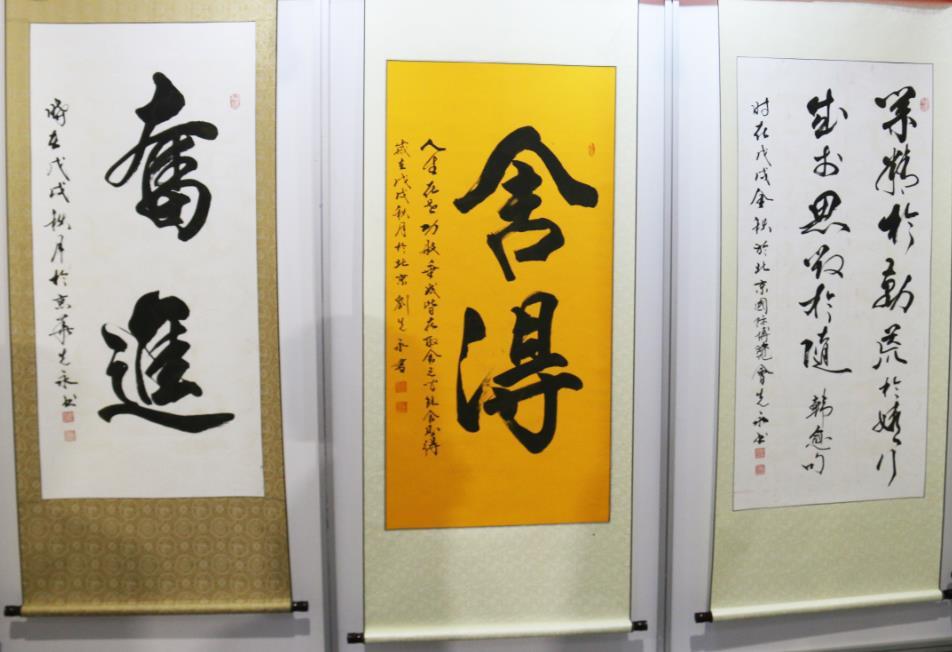 奮進
時在戊戌秋月於京華先永书
舍得
人生在世功敗垂成皆在取舍之
歲在戊戌秋月於北京劉先永書
業精於勤荒於嬉行
成於思毀於隨 韓愈句
时在戊戌金秋於北京國際博覽會先永书